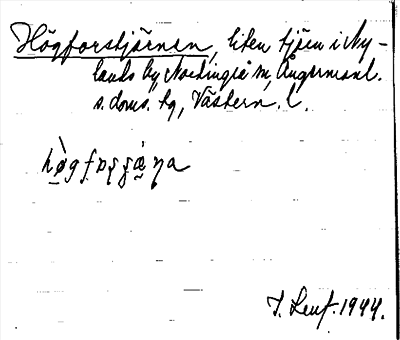 Högforstjärnen, liten tjärn i Ny-
lands by, Nordingrå sn, Ångermanl.
s. doms. tg, Västern. l.
J. Leuf. 1944.